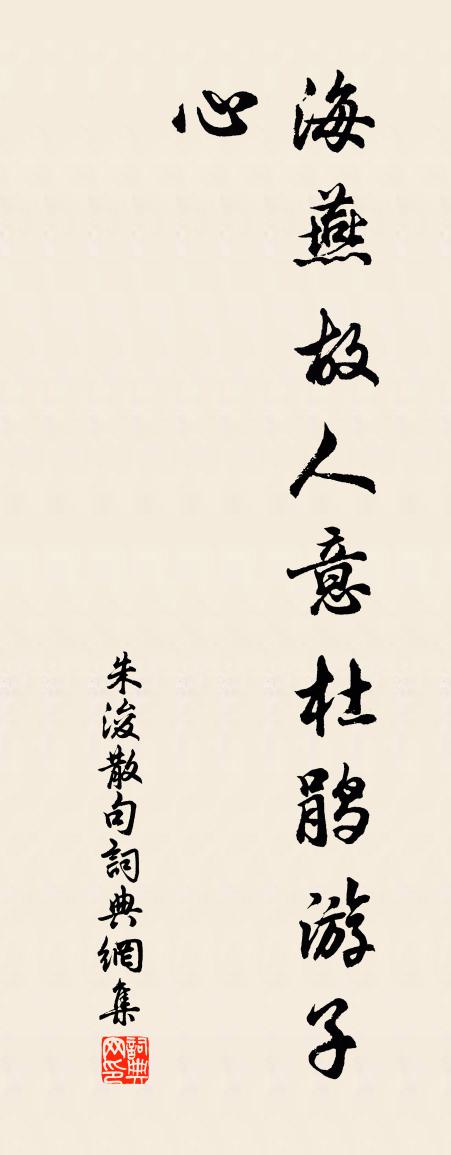 海燕故人意杜鹃游子
心
朱浚散句詞典網集
詞典网印